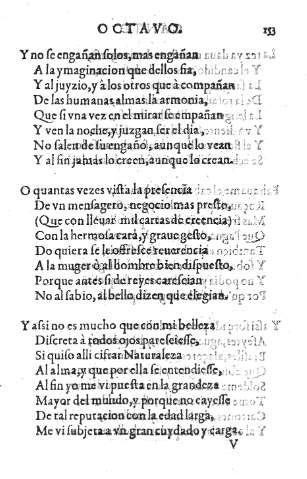 OCTAVO. 153
Y no se engañan solos, mas engañan
A la ymaginacion que dellos fia,
Y al juyzio, y à los otros que à compañan
De las humanas almas la armonia,
Que si vna vez en el mirar se empañan
Y ven la noche, y juzgan ser el dia,
No salen de su engaño, aunque lo vean
Y al fin jamàs lo creen, aunque lo crean.
O quantas vezes vista la presencia
De vn mensagero, negocio mas presto,
(Que con lleuar mil cartas de creencia)
Con la hermosa cara, y graue gesto,
Do quiera se le offresce reuerencia
A la muger ò al hombre bien dispuesto,
Porque antes si de reyes carescian
No al sabio, al bello dizen que elegian.
Y assi no es mucho que con mi belleza
Discreta à todos ojos paresciesse,
Si quiso alli cifrar Naturaleza
Al alma, y que por ella se entendiesse,
Al fin yo me vi puesta en la grandeza
Mayor del mundo, y porque no cayesse
De tal reputacion con la edad larga,
Me vi subjeta a vn gran cuydado y carga.
V